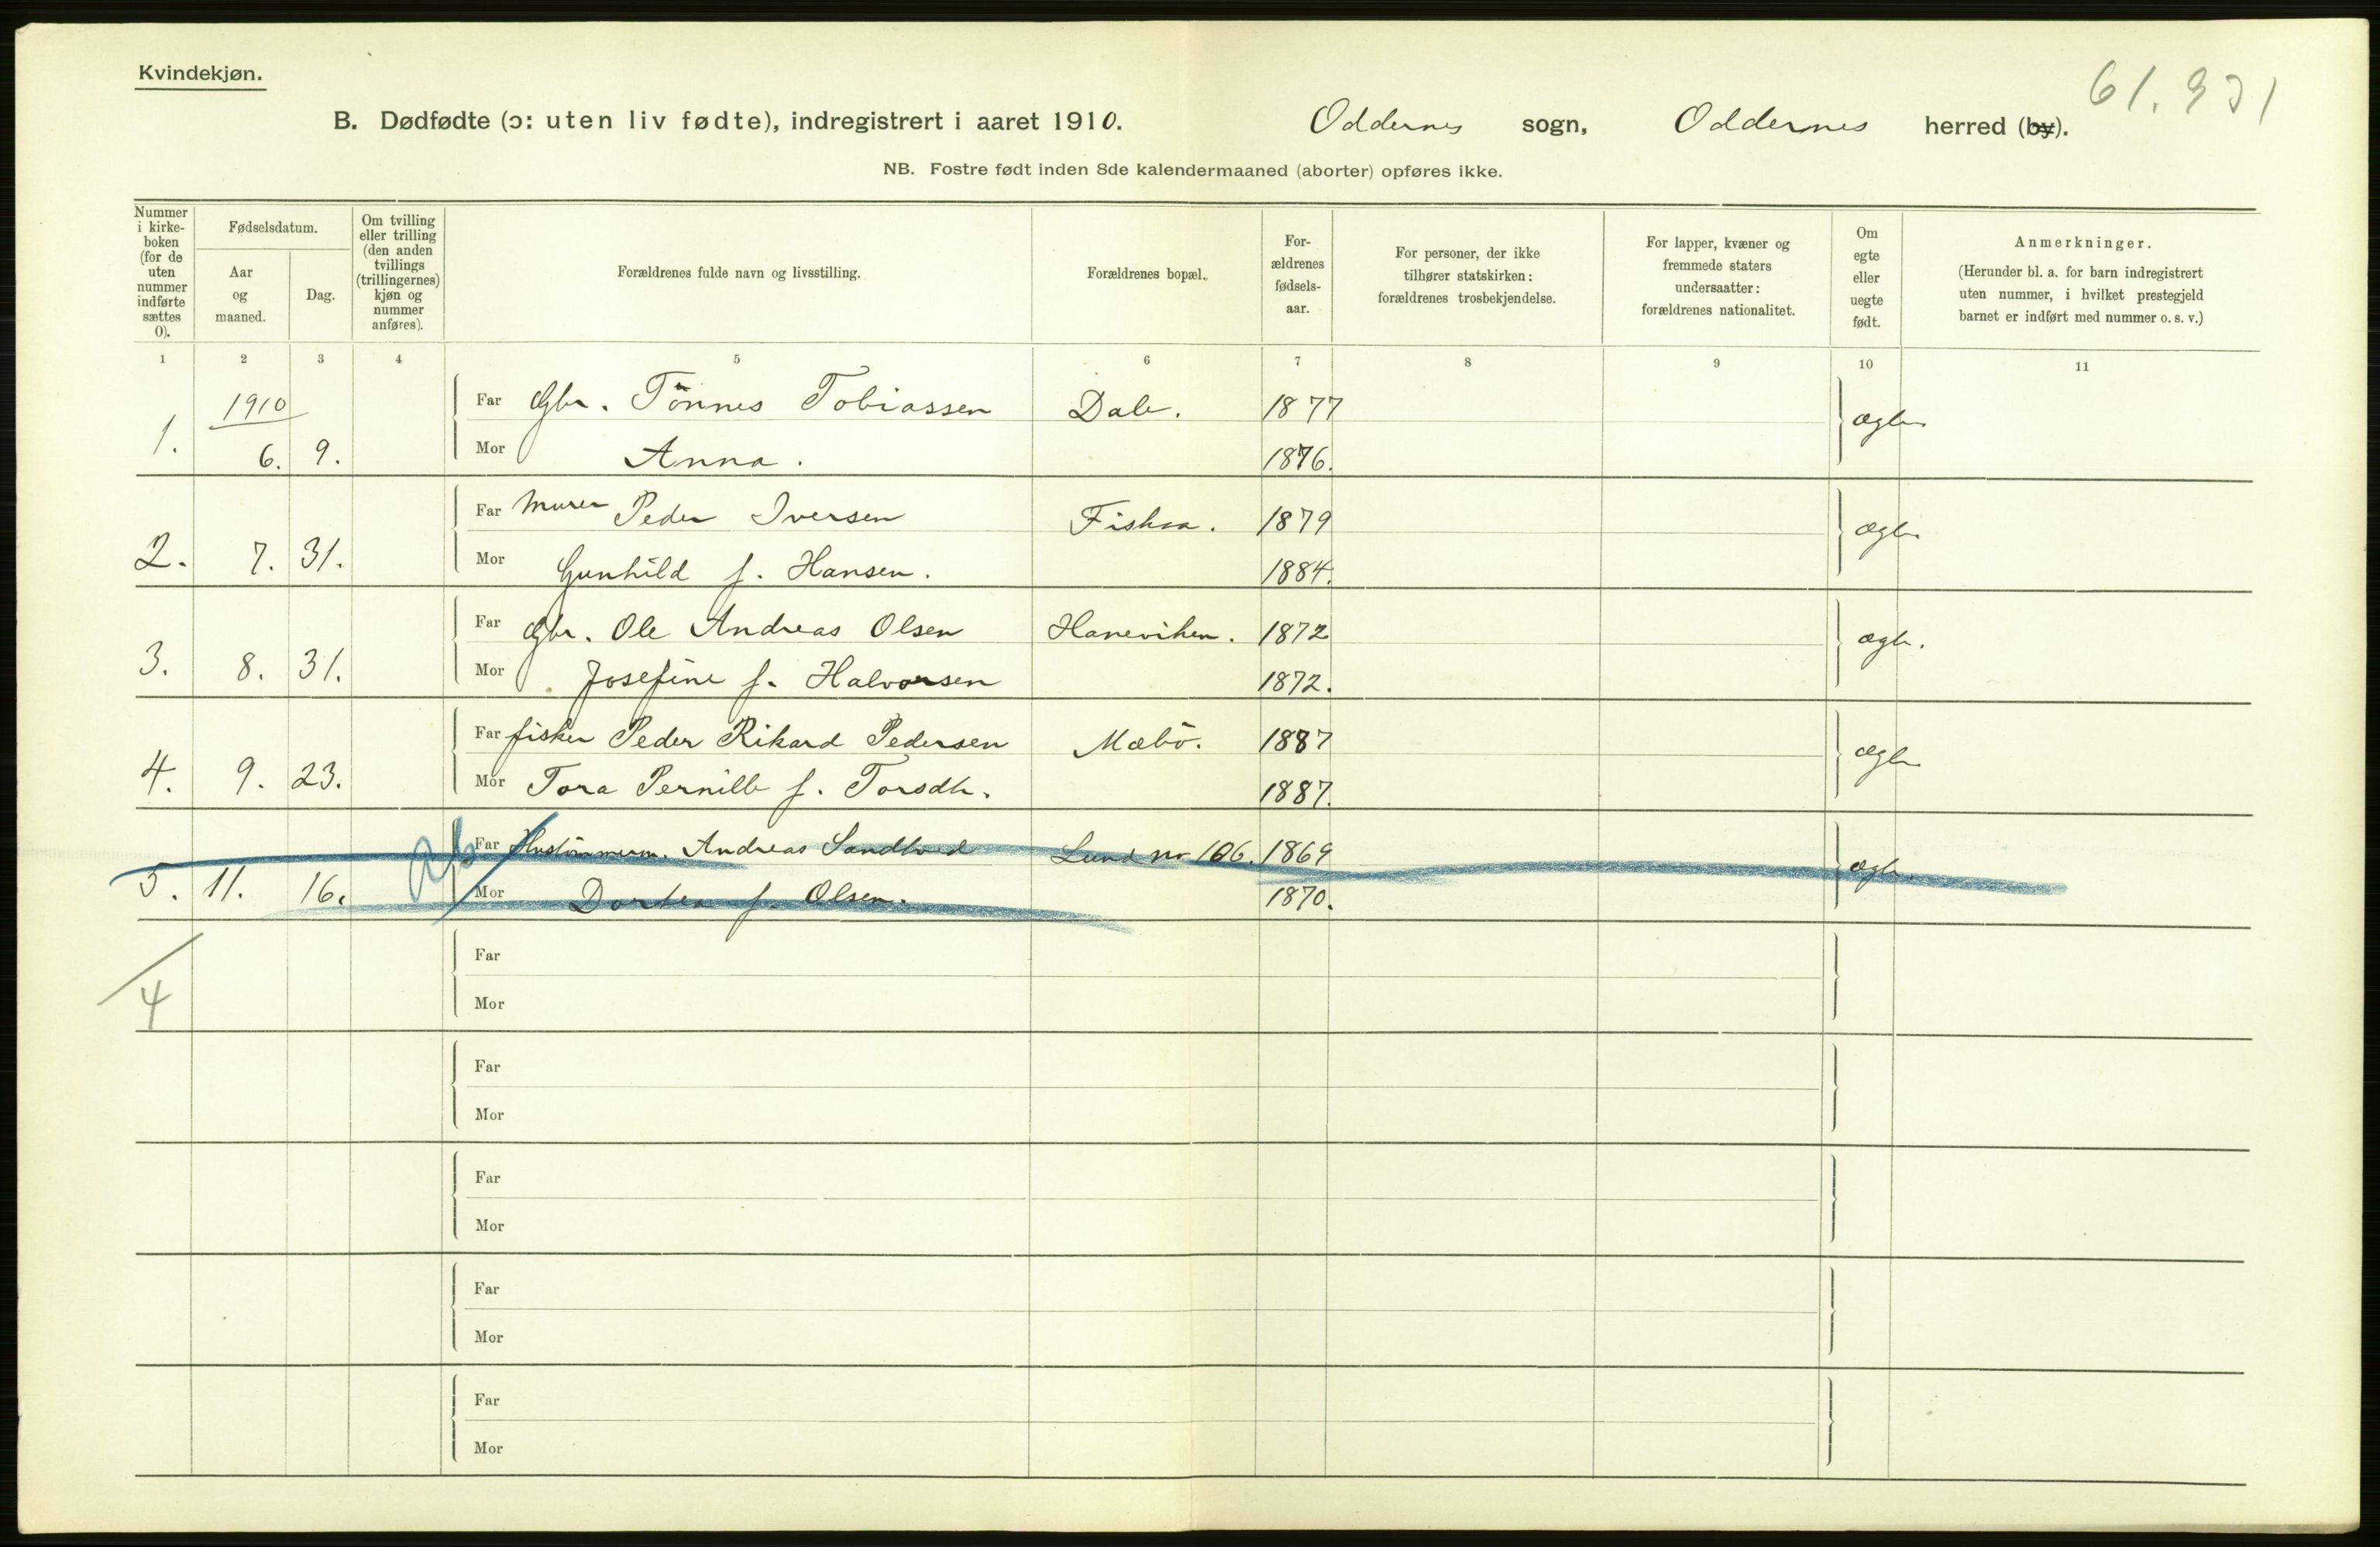 Kvindekjøn.
61.931
B. Dødfødte (ɔ: uten liv fødte), indregistrert i aaret 1910. Oddernes sogn, Oddernes herred (by).
NB. Fostre født inden 8de kalendermaaned (aborter) opføres ikke.
Nummer i kirke-boken (for de uten nummer indførte sættes 0).
Fødselsdatum.
Aar og maaned.
Dag.
Om tvilling eller trilling (den anden tvillings (trillingernes) kjøn og nummer anføres).
Forældrenes fulde navn og livsstilling.
Forældrenes bopæl.
For-ældrenes fødsels-aar.
For personer, der ikke tilhører statskirken: forældrenes trosbekjendelse.
For lapper, kvæner og fremmede staters undersaatter: forældrenes nationalitet.
Om egte eller uegte født.
Anmerkninger.
(Herunder bl. a. for barn indregistrert uten nummer, i hvilket prestegjeld barnet er indført med nummer o. s. v.)
1 2 3 4 5 6 7 8 9 10 11
1910
Far Gbr. Tönnes Tobiassen Dale. 1877 ægte
1. 6. 9. Mor Anna. 1876.
Far Murer Peder Iversen Fiskaa. 1879 ægte
2. 7. 31. Mor Gunhild f. Hansen. 1884.
Far Gbr. Ole Andreas Olsen Haneviken. 1872 ægte.
3. 8. 31. Mor Josefine f. Halvorsen 1872.
Far fisker Peder Rikard Pedersen Mæbö. 1887 ægte
4. 9. 23. Mor Tora Pernille f. Torsdtr. 1887.
Far Hustömmerm. Andreas Lund nr 106. 1869 ægte
5. 11. 16. Mor Dortea f. Olsen. 1870.
Far
4
Mor
Far
Mor
Far
Mor
Far
Mor
Far
Mor